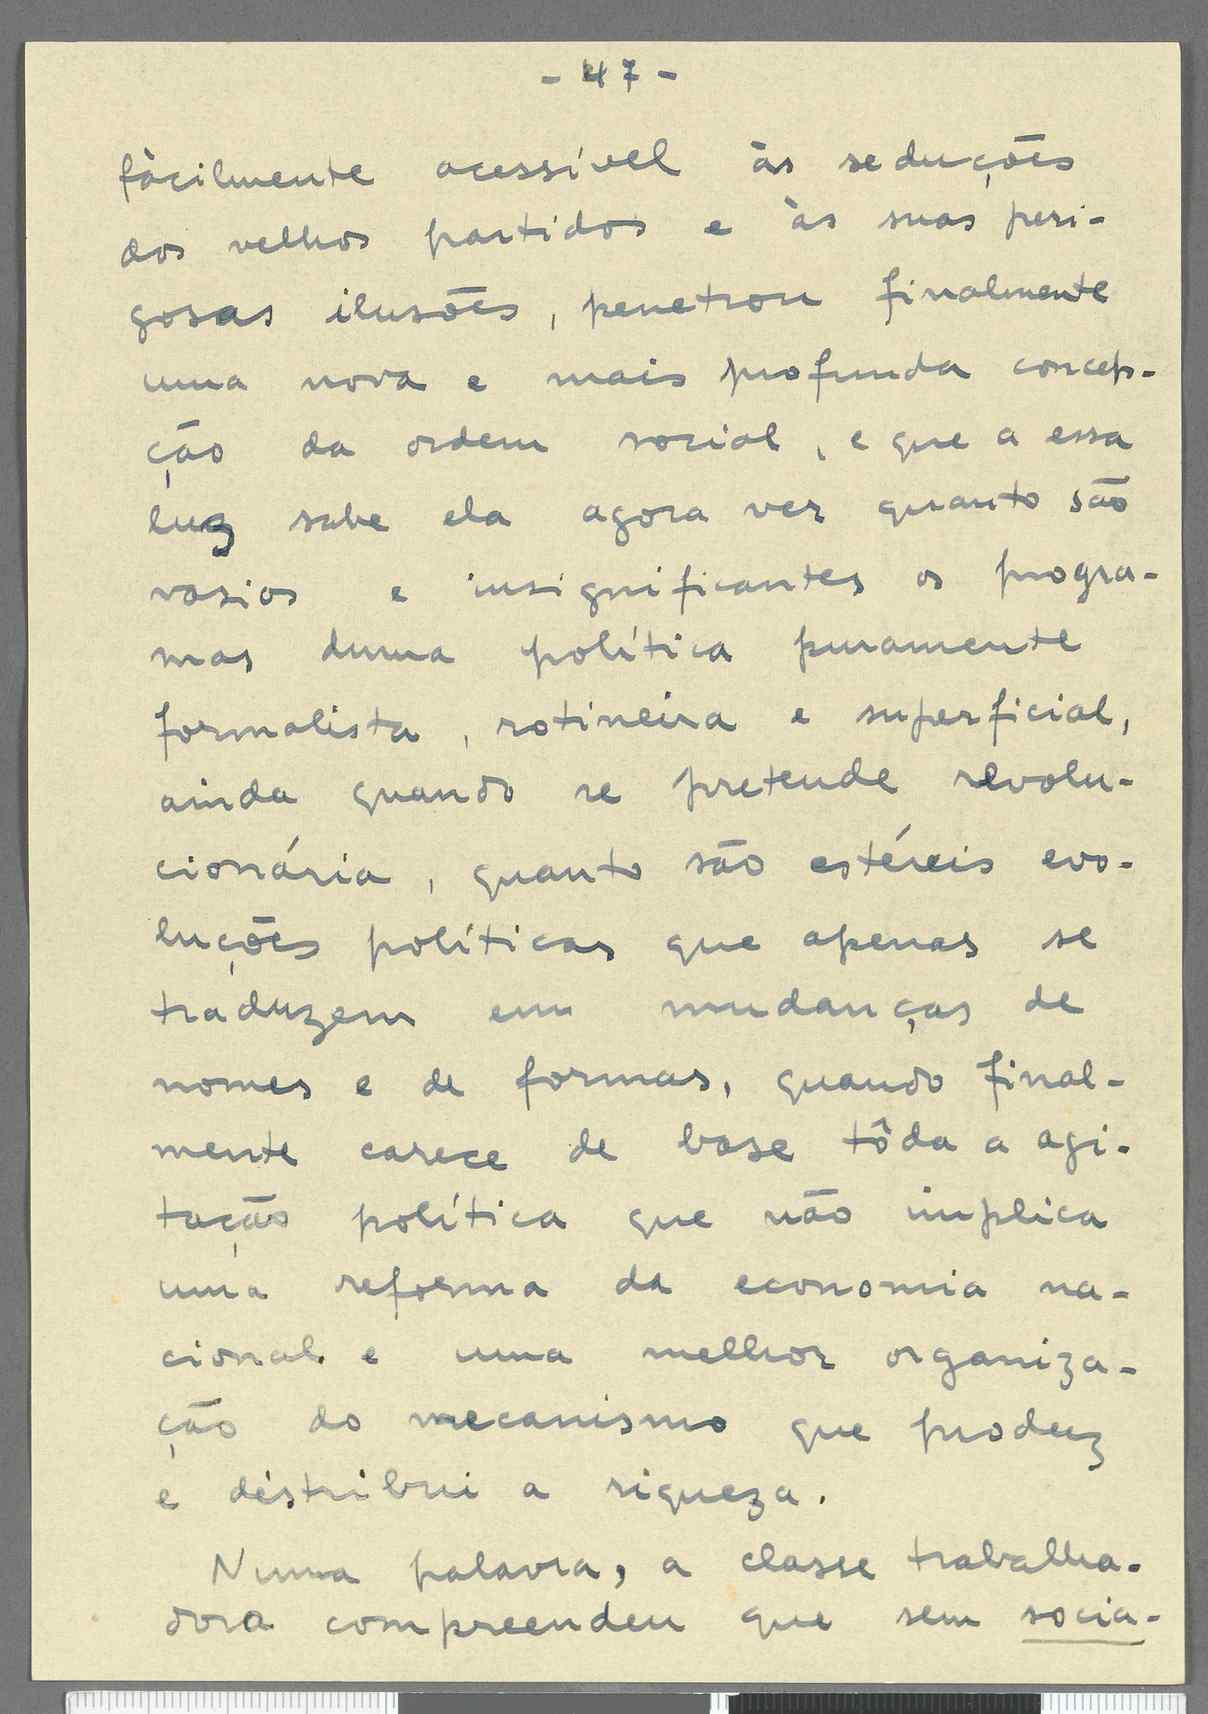 - 47 -
fàcilmente acessível às seduções
dos velhos partidos e às suas peri-
gosas ilusões, penetrou finalmente
uma nova e mais profunda concep-
ção da ordem social, e que a essa
luz sabe ela agora ver quanto são
vasios e insignificantes os progra-
mas duma política puramente
formalista, rotineira e superficial,
ainda quando se pretende revolu-
cionária, quanto são estéreis evo-
luções políticas que apenas se
traduzem em mudanças de
nomes e de formas, quando final-
mente carece de base tôda a agi-
tação política que não implica
uma reforma da economia na-
cional e uma melhor organiza-
ção do mecanismo que produz
e distribui a riqueza.
Numa palavra, a classe trabalha-
dora compreendeu que sem socia-